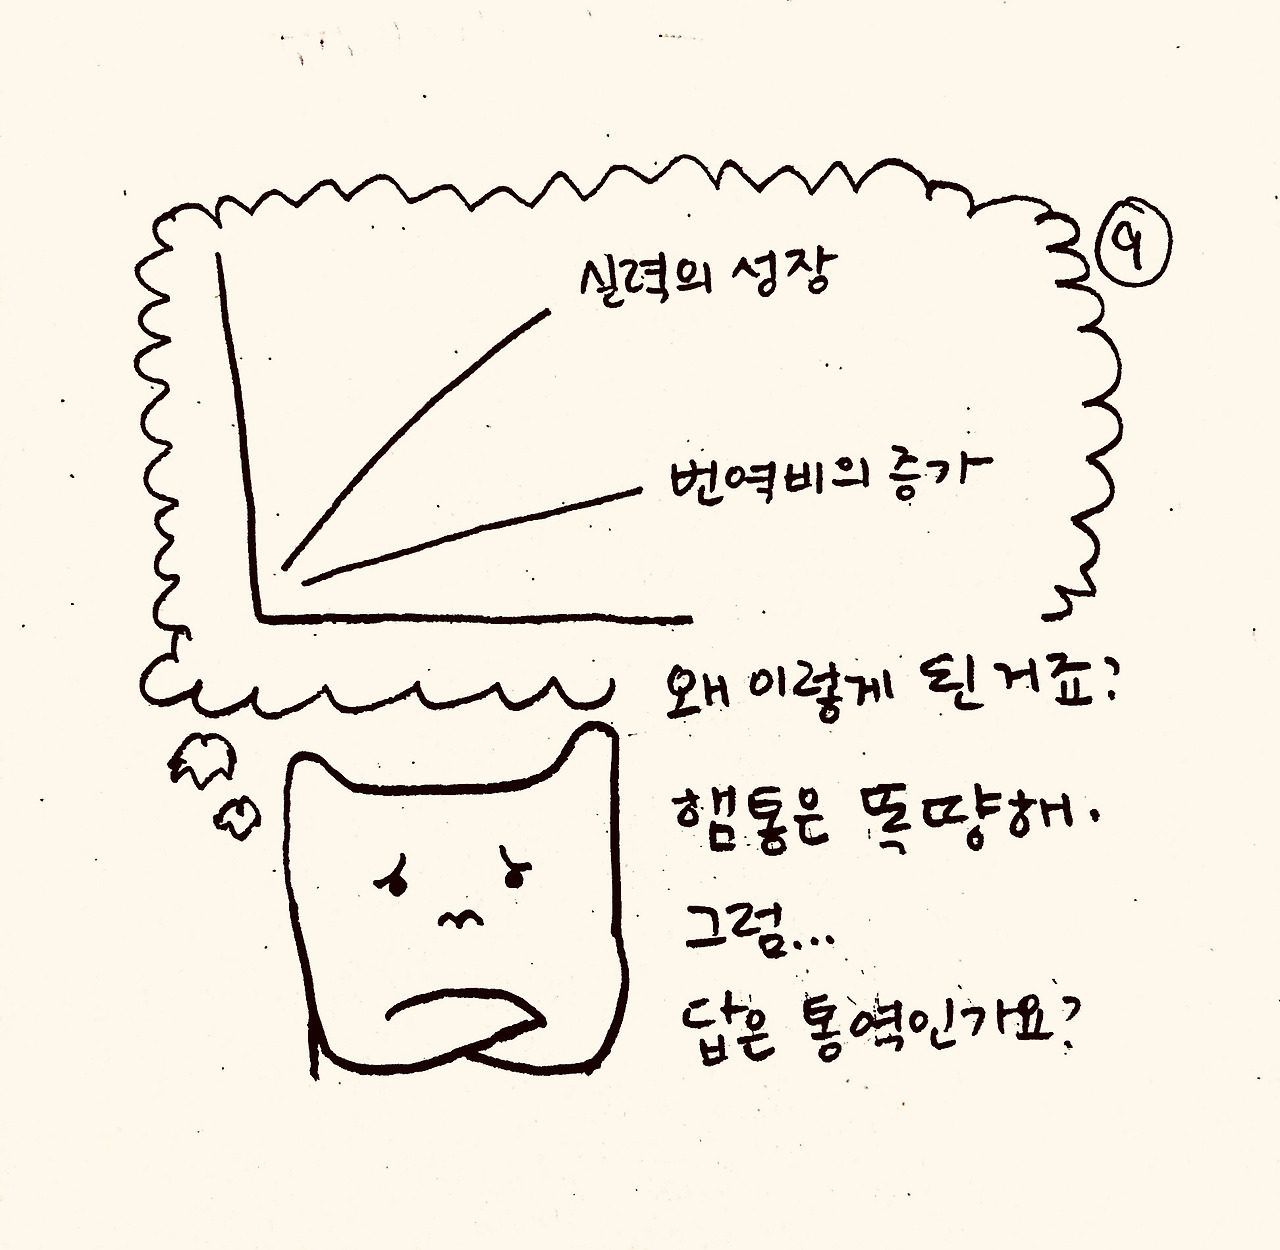 9
실력의 성장
번역비의 증가
왜 이렇게 된 거죠?
햄통은 똑땽해.
그럼...
답은 통역인가요?